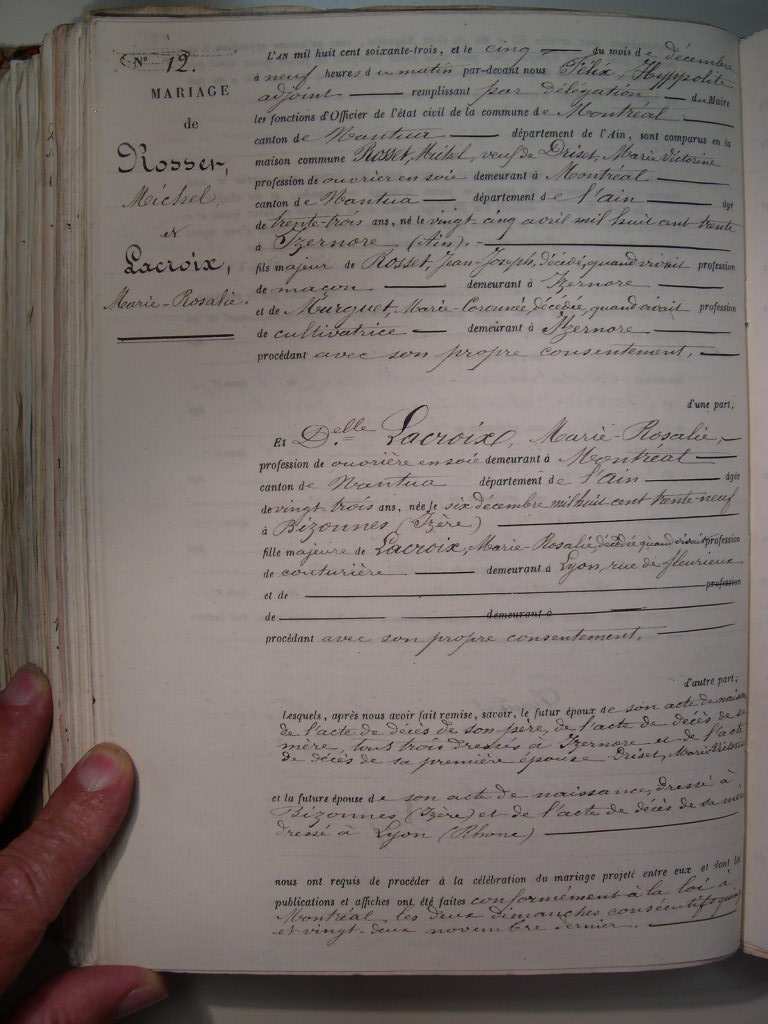 Nº 12.
MARIAGE
de
Rosset,
Michel,
et
Lacroix,
Marie-Rosalie.
L'AN mil huit cent soixante-trois, et le cinq du mois de décembre
à neuf heures du matin par-devant nous Félix, Hyppolite
adjoint remplissant par délégation du Maire
les fonctions d'Officier de l'état civil de la commune de Montréal
canton de Nantua département de l'Ain, sont comparus en la
maison commune Rosset, Michel, veuf de Driset, Marie Victorine
profession de ouvrier en soie demeurant à Montréal
canton de Nantua département de l'ain âgé
de trente-trois ans, né le vingt-cinq avril mil huit cent trente
à Izernore (Ain).
fils majeur de Rosset, Jean-Joseph, décédé, quand vivait profession
de maçon demeurant à Izernore
et de Murguet, Marie- décédée, quand vivait profession
de cultivatrice demeurant à Izernore
procédant avec son propre consentement,
d'une part,
Et D.elle Lacroix, Marie-Rosalie,
profession de ouvrière en soie demeurant à Montréal
canton de Nantua département de l'ain âgée
de vingt trois ans, née le six décembre mil huit cent trente-neuf
à Bizonnes (Izère)
fille majeure de Lacroix, Marie-Rosalie, décédée quand vivait profession
de couturière demeurant à Lyon, rue de fleurieux
et de profession
de demeurant à
procédant avec son propre consentement,
d'autre part;
Lesquels, après nous avoir fait remise, savoir, le futur époux de son acte de naissance
de l'acte de décès de son père, de l'acte de décès de sa
mère, tous trois dressés à Izernore et de l'acte
de décès de sa première épouse Driset, Marie Victorine
et la future épouse de son acte de naissance, dressé à
Bizonnes (Izère) et de l'acte de décès de sa mère
dressé à Lyon (Rhone)
nous ont requis de procéder à la célébration du mariage projeté entre eux et dont les
publications et affiches ont été faites conformément à la loi à
Montréal, les deux dimanches consécutifs quinze
et vingt-deux novembre dernier.